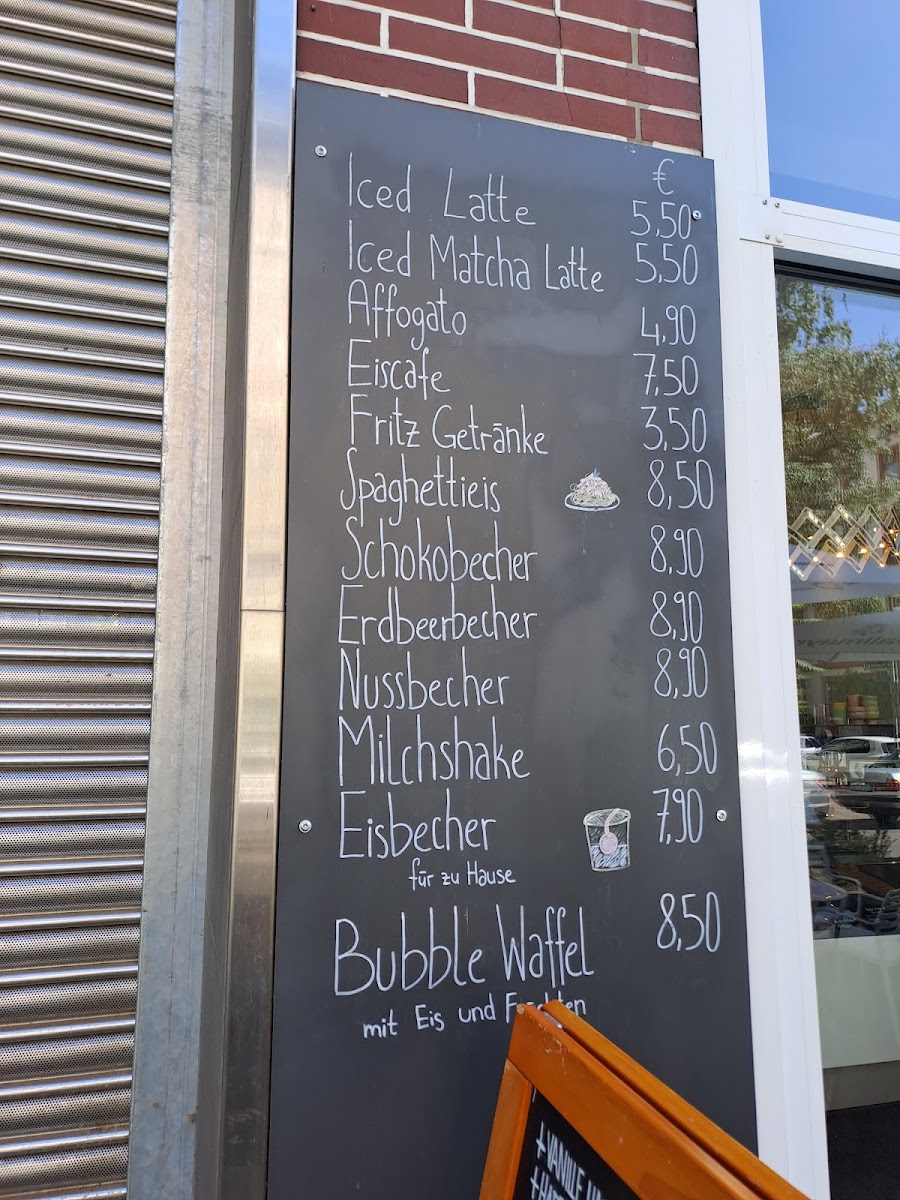 €
Iced Latte 5,50
Iced Matcha Latte 5,50
Affogato 4,90
Eiscafe 7,50
Fritz Getränke 3,50
Spaghettieis 8,50
Schokobecher 8,90
Erdbeerbecher 8,90
Nussbecher 8,90
Milchshake 6,50
Eisbecher 7,90
für zu Hause
Bubble Waffel 8,50
mit Eis und
+ VANILLE